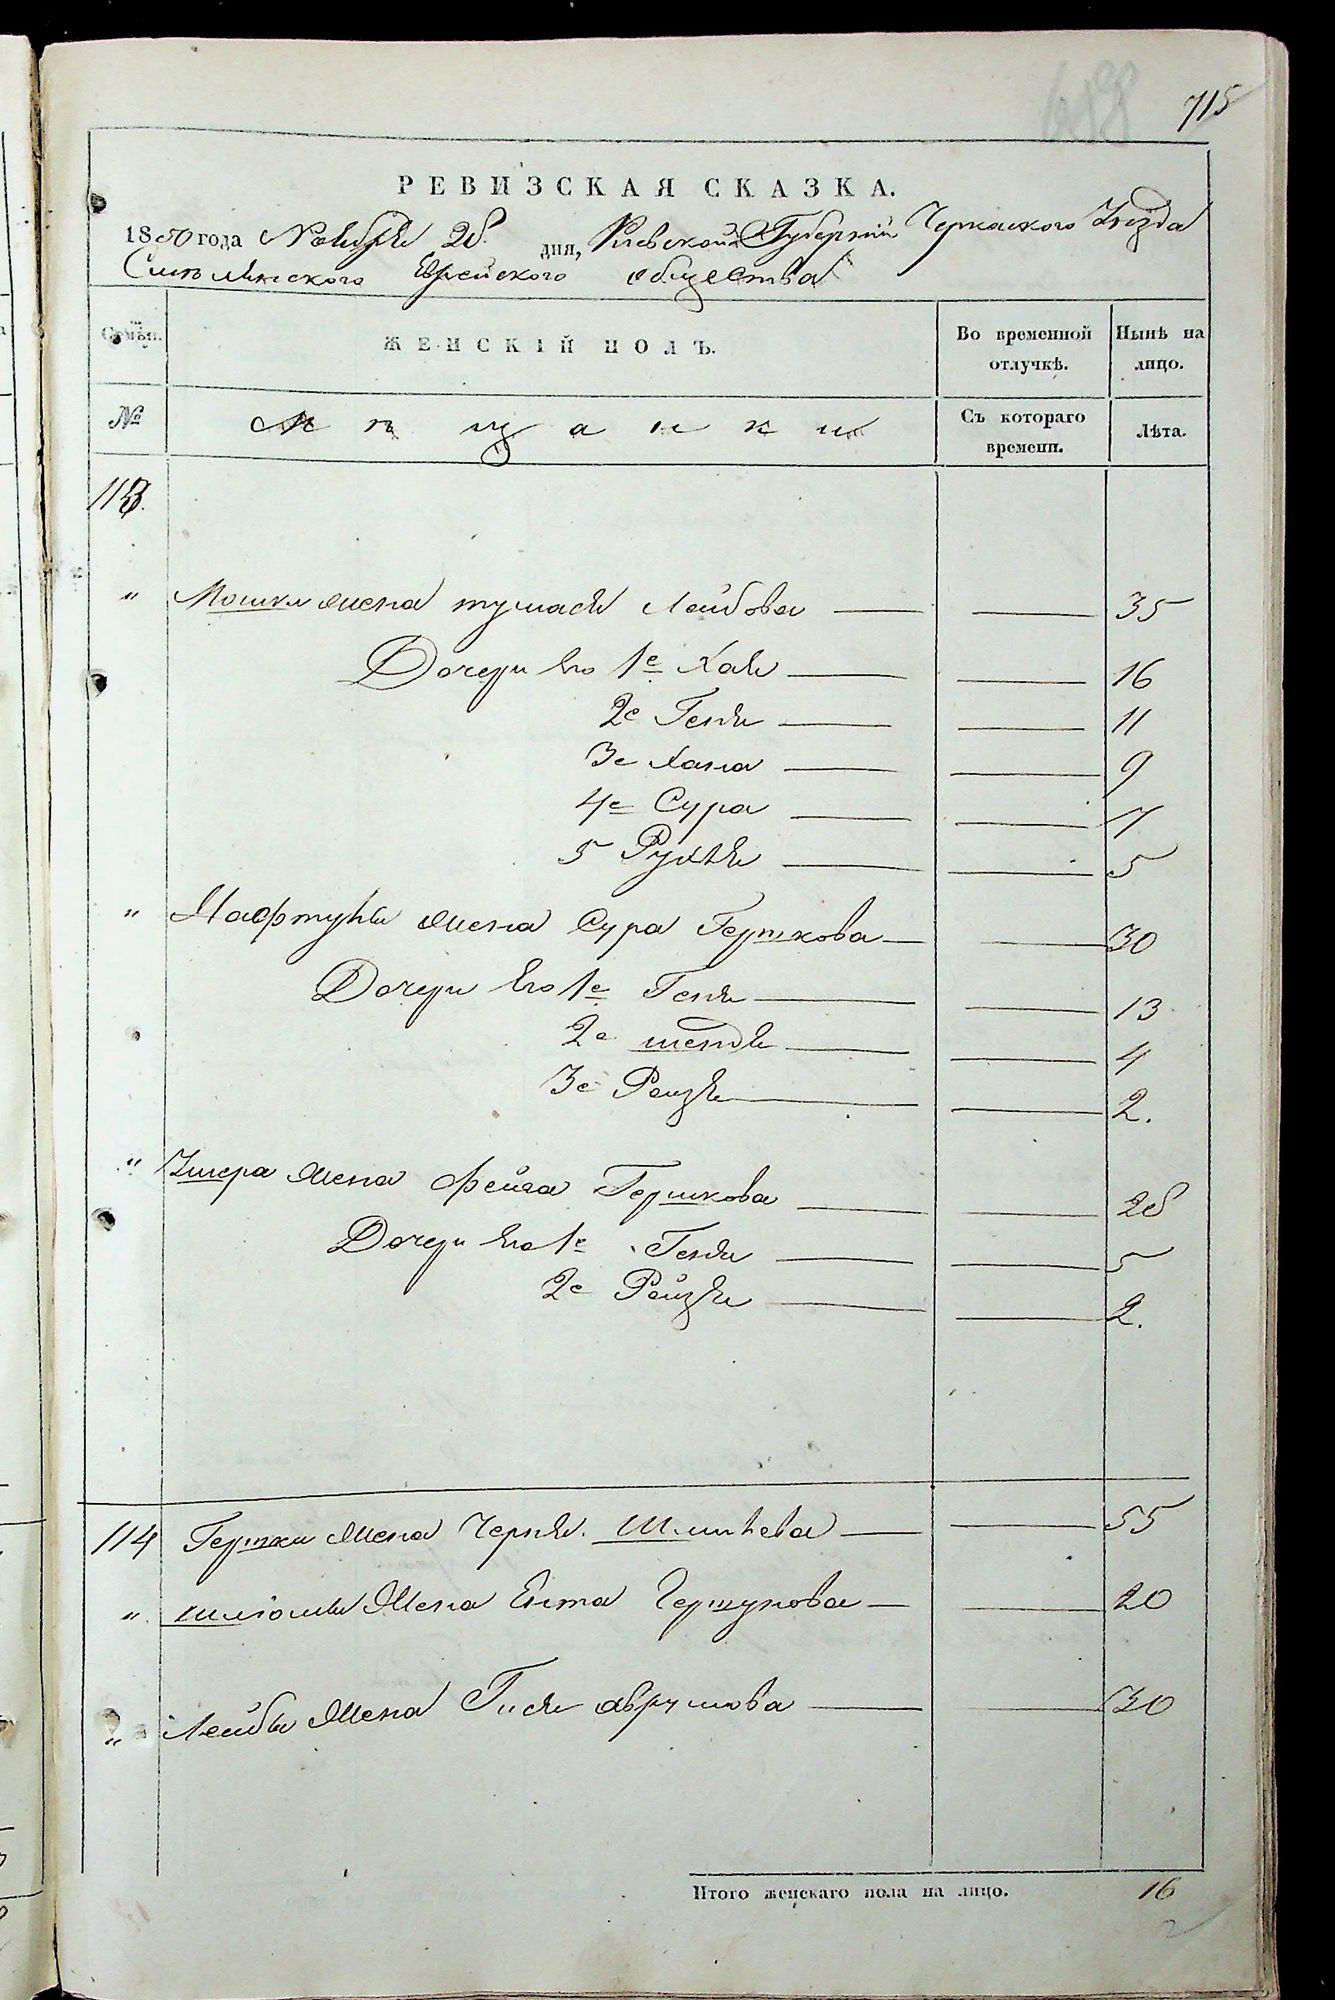 715
РЕВИЗСКАЯ СКАЗКА.
1850 года Ноября 28 дня, Киевской Губерніи Черкаского Уѣзда
Смѣлянского Еврейского общества
Семьи. ЖЕНСКІЙ ПОЛЪ. Во временной отлучкѣ. Нынѣ на лицо.
№ Мѣщанки Съ котораго времени. Лѣта.
113.
" Мошки жена Лейбова 35
Дочери его 1е Хая 16
2е Геня 11
3е Хана 9
4е Сура 7
5 Рухля 5
" Нафтулы жена Сура Гершкова 30
Дочери его 1е Геня 13
2е шендя 4
3е Рейзя 2.
" Ушера жена Фейга Гершкова 28
Дочери его 1е Геня 5
2е Рейзя 2.
114 Гершки жена Черня 55
" шліомы жена Ента 20
" Лейбы жена Гися аврумова 30
Итого женскаго пола на лицо. 16